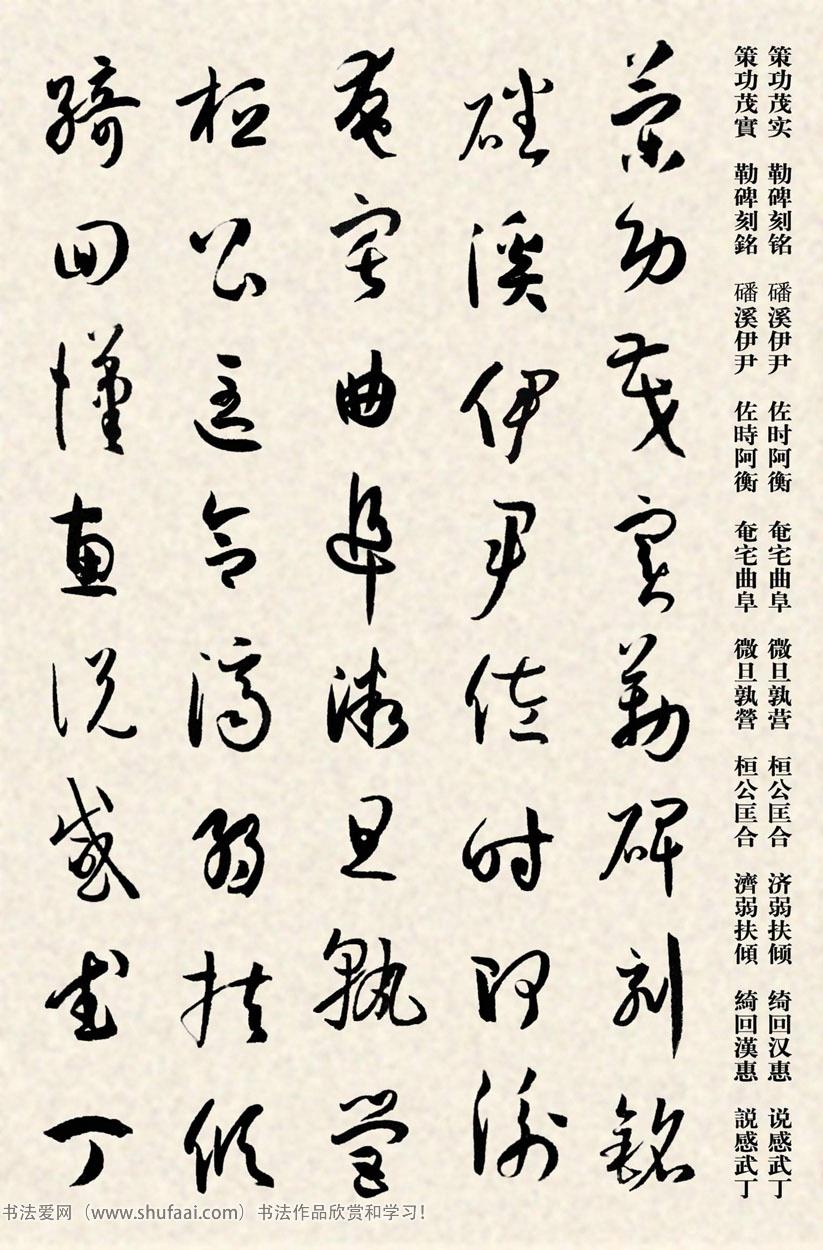 策功茂实 勒碑刻铭 磻溪伊尹 佐时阿衡 奄宅曲阜 微旦孰营 桓公匡合 济弱扶倾 绮回汉惠 说感武丁
策功茂實 勒碑刻銘 磻溪伊尹 佐時阿衡 奄宅曲阜 微旦孰營 桓公匡合 濟弱扶傾 綺回漢惠 説感武丁
策功茂實勒碑刻銘
磻溪伊尹佐時阿衡
奄宅曲阜微旦孰營
桓公匡合濟弱扶傾
綺回漢惠說感武丁
书法爱网（www.shufaai.com）书法作品欣赏和学习！